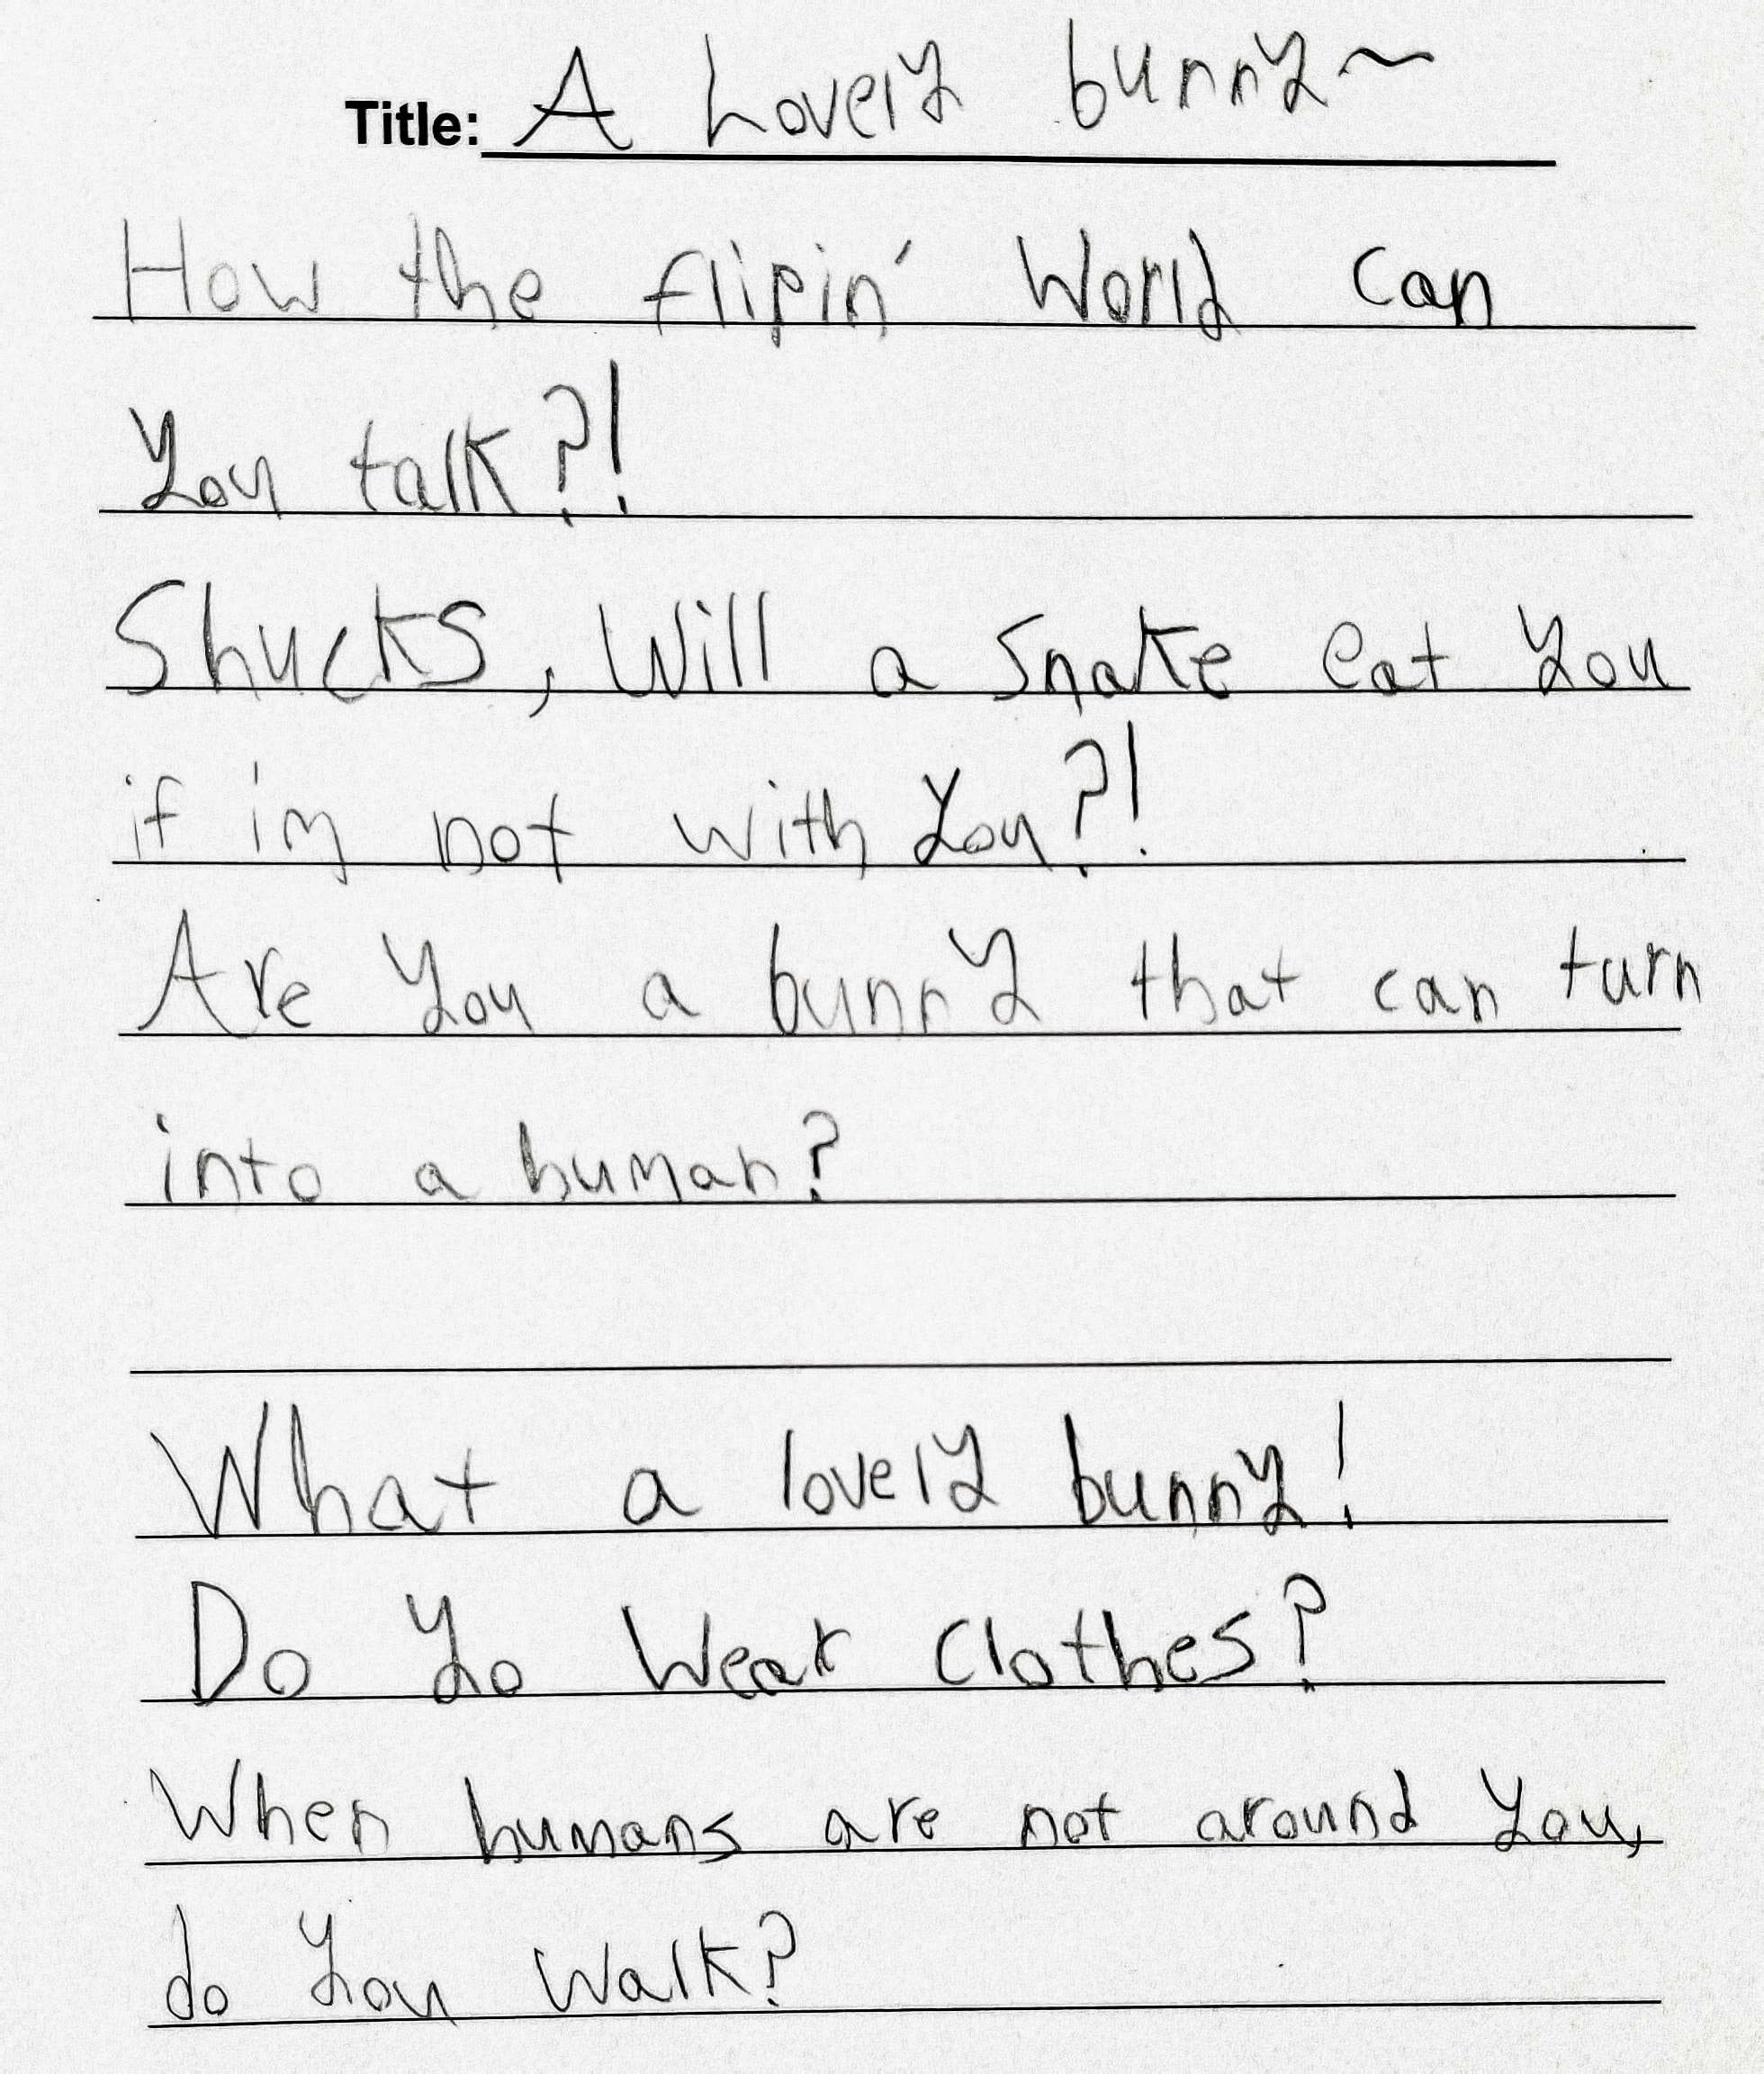 Title: A Lovely bunny~
How the flipin' World can
You talk?!
Shucks, Will a Snake eat You
if i'm not with You?!
Are You a bunny that can turn
into a human?
What a lovely bunny!
Do Yo Wear Clothes?
When humans are not around You,
do You Walk?